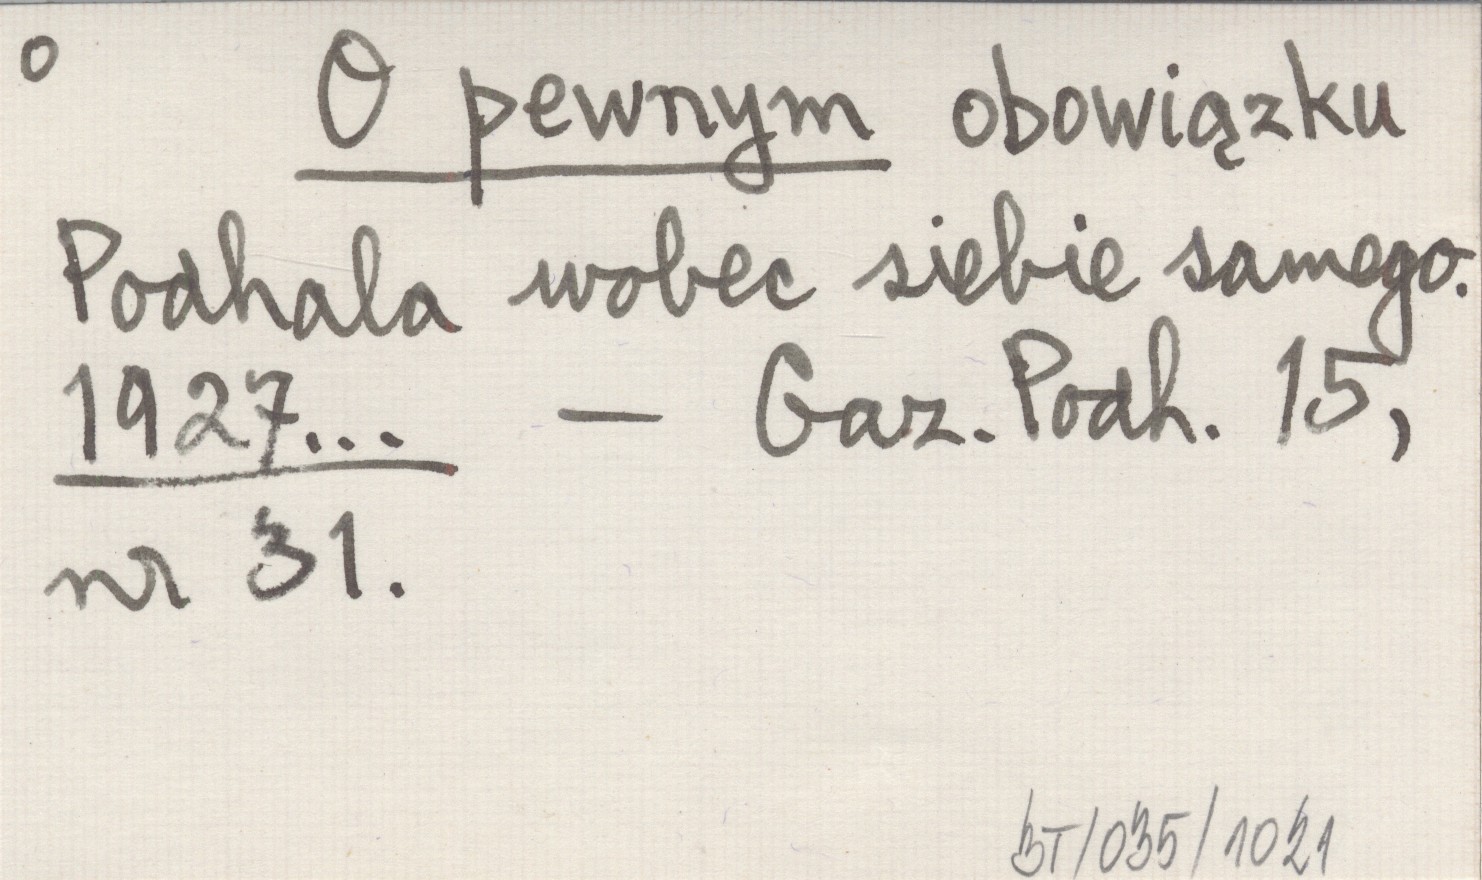 o
O pewnym obowiązku
Podhala wobec siebie samego.
1927... — Gaz. Podh. 15,
nr 31.
BT/035/1021